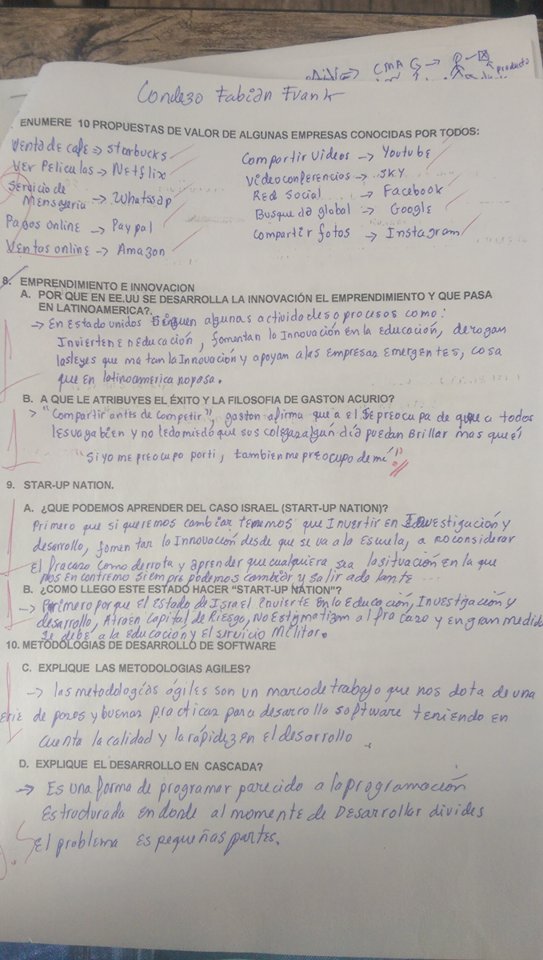 CMA G → P → producto
Condezo Fabian Frank
ENUMERE 10 PROPUESTAS DE VALOR DE ALGUNAS EMPRESAS CONOCIDAS POR TODOS:
Venta de cafe → Starbucks
Ver Peliculas → Netflix
Servicio de Mensgeria → Whatssap
Pagos online → Paypal
Ventas online → Amazon
Compartir Videos → Youtube
Videoconferencios → SKY
Red Social → Facebook
Busqueda global → Google
Compartir fotos → Instagram
8. EMPRENDIMIENTO E INNOVACION
A. POR QUE EN EE.UU SE DESARROLLA LA INNOVACIÓN EL EMPRENDIMIENTO Y QUE PASA
EN LATINOAMERICA?.
→ En estado unidos siguen algunas actividades o procesos como:
Invierten en educación, fomentan la Innovación en la educación, derogan
las leyes que matan la Innovación y apoyan a las empresas emergentes, cosa
que en latinoamerica no pasa.
B. A QUE LE ATRIBUYES EL ÉXITO Y LA FILOSOFIA DE GASTON ACURIO?
→ "Compartir antes de competir", gaston afirma que a el se preocupa de que a todos
les vaya bien y no le da miedo que sus colegas algún día puedan Brillar mas que él
"Si yo me preocupo por ti, tambien me preocupo de mí"!
9. STAR-UP NATION.
A. ¿QUE PODEMOS APRENDER DEL CASO ISRAEL (START-UP NATION)?
Primero que si queremos cambiar tenemos que Invertir en Investigación y
desarrollo, fomentar la Innovación desde que se va a la Escuela, a no considerar
el fracazo como derrota y aprender que cualquiera sea la situación en la que
nos encontremo siempre podemos cambiar y salir adelante
B. ¿COMO LLEGO ESTE ESTADO HACER "START-UP NATION"?
→ Primero porque el Estado de Israel Invierte en la Educación, Investigación y
desarrollo, Atraen Capital de Riesgo, No Estigmatizan al fracazo y en gran medida
se debe a la educacion y el servicio Militar.
10. METODOLOGIAS DE DESARROLLO DE SOFTWARE
C. EXPLIQUE LAS METODOLOGIAS AGILES?
→ las metodologías ágiles son un marco de trabajo que nos dota de una
serie de pasos y buenas practicas para desarrolla software teniendo en
cuenta la calidad y la rápidez en el desarrollo.
D. EXPLIQUE EL DESARROLLO EN CASCADA?
→ Es una forma de programar parecido a la programación
Estructurada en donde al momento de Desarrollar divides
El problema es pequeñas partes.